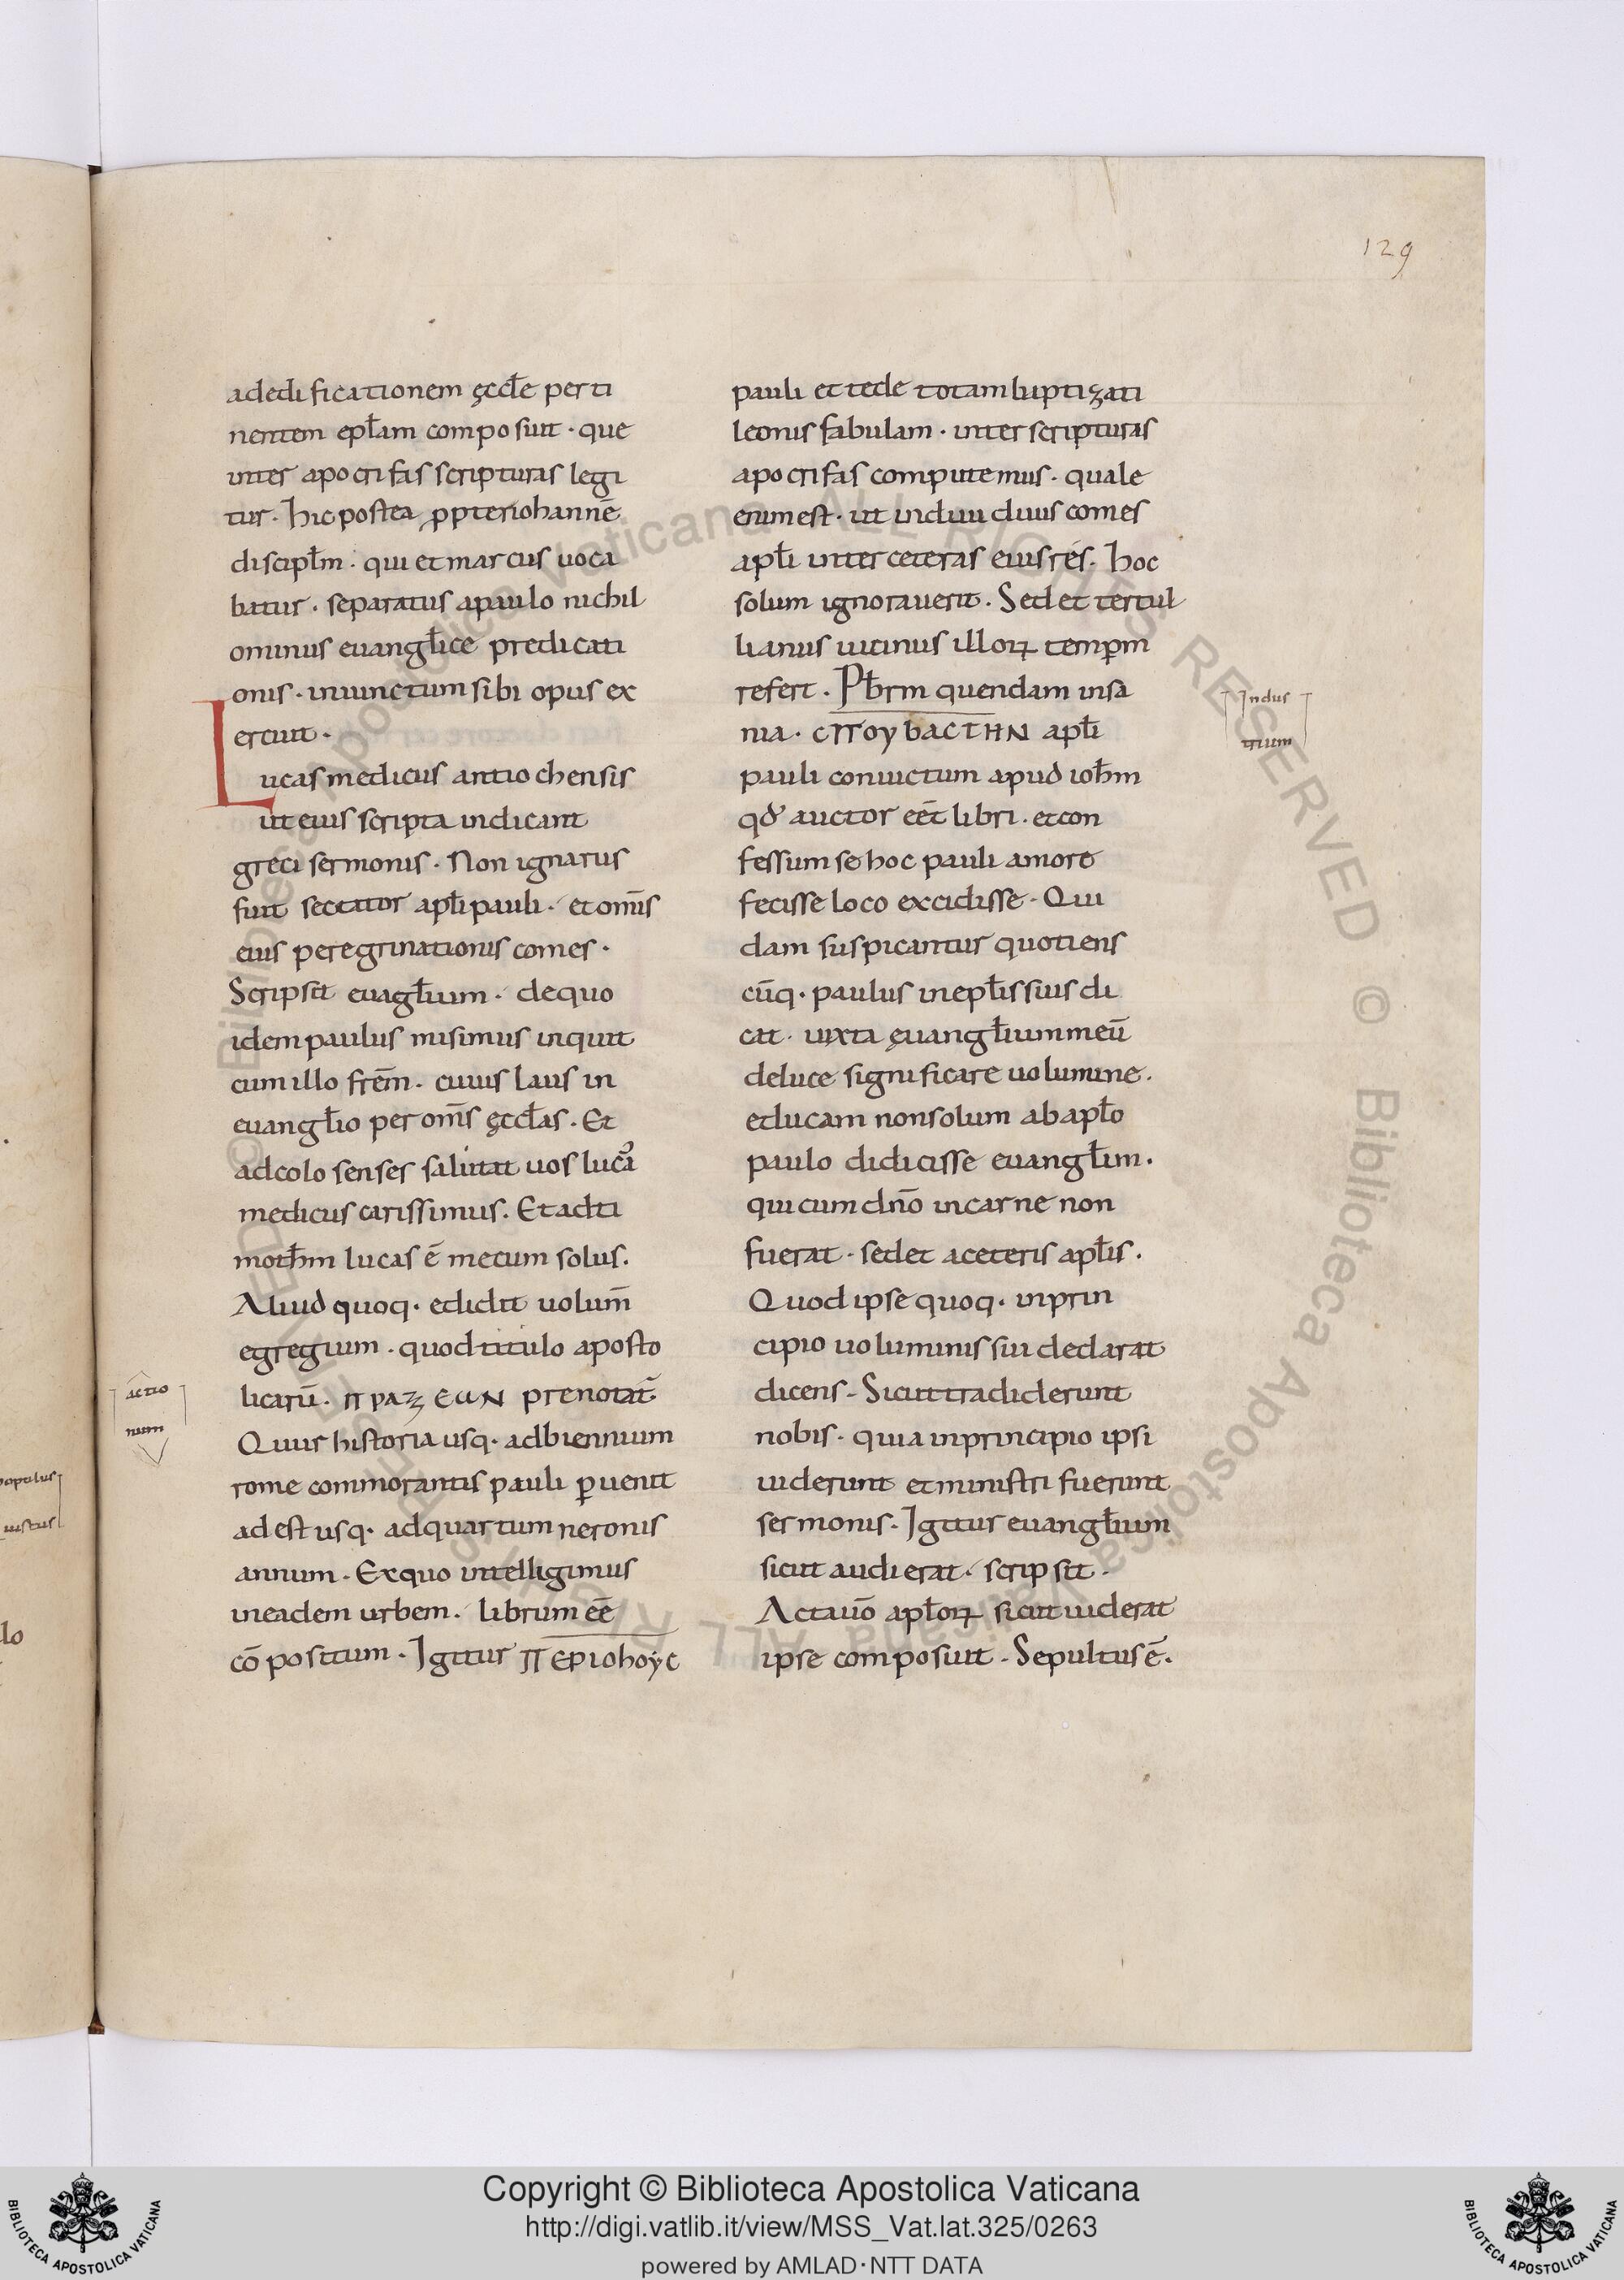 129
adedificationem ęccłe perti
nentem epłam composuit · que
inter apocrifas scripturas legi
tur · hic postea ꝓpter iohannē
discipłm · qui et marcus uoca
batur · separatus apaulo nichil
ominus euangłice predicati
onis · iniunctum sibi opus ex
ercuit ·
Lucas medicus antiochensis
ut eius scripta indicant
greci sermonis · Non ignarus
fuit sectator apłi pauli · et om̄s
eius peregrinationis comes ·
Scripsit euagłium · dequo
idem paulus misimus inquit
cum illo frēm · cuius laus in
euangłio per om̄s ęccłas · Et
adcolosenses salutat uos lucas
medicus carissimus · Et adti
moth̄m lucas ē mecum solus.
Aliud quoq · edidit uolum̄
egregium · quod titulo aposto
licarū · πραξεωΝ prenotat̄
actio
num
Quius historia usq · adbiennium
rome commorantis pauli ꝑuenit
ad est usq · adquartum neronis
annum · Exquo intelligimus
ineadem urbem · librum eē
cō positum · Igitur περιοhογc
pauli et tecle totam bꞁptizati
leonis fabulam · inter scripturas
apocrifas computemus · quale
enim est · ut indiuiduus comes
apłi inter ceteras eius res · hoc
solum ignorauerit · Sed et tertul
lianus uicinus illoꝝ temp̄m
refert · Pb̄rm quendam inasia
nia · cποyδαcτHN apłi
Indus
trium
pauli conuictum apud ioh̄m
qd̄ auctor eēt libri · et con
fessum se hoc pauli amore
fecisse loco excidisse · Qui
dam suspicantur quotiens
cūq · paulus inepłis suis di
cat · iuxta ęuangłium meū
deluce significare uolumine ·
et lucam nonsolum ab apło
paulo didicisse euangłim ·
qui cum dn̄o incarne non
fuerat · sed et aceteris apłis ·
Quod ipse quoq · inprin
cipio uoluminis sui declarat
dicens · Sicut tradiderunt
nobis · quia inprincipio ipsi
uiderunt et ministri fuerunt
sermonis · Igitur euangłium
sicut audierat · scripsit ·
Acta uō apłoꝝ sicut uiderat
ipse composuit · Sepultus ē ·
Copyright © Biblioteca Apostolica Vaticana
http://digi.vatlib.it/view/MSS_Vat.lat.325/0263
powered by AMLAD·NTT DATA
BIBLIOTECA APOSTOLICA VATICANA
BIBLIOTECA APOSTOLICA VATICANA